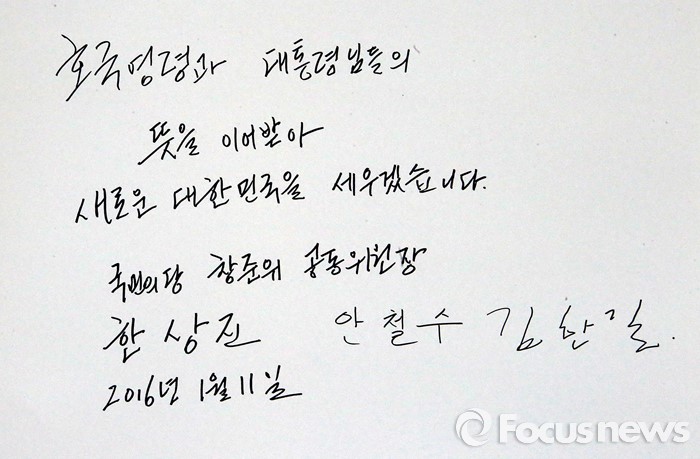 호국영령과 대통령님들의
뜻을 이어받아
새로운 대한민국을 세우겠습니다.
국민의당 창준위 공동위원장
한상진 안철수 김한길.
2016년 1월 11일
Focusnews